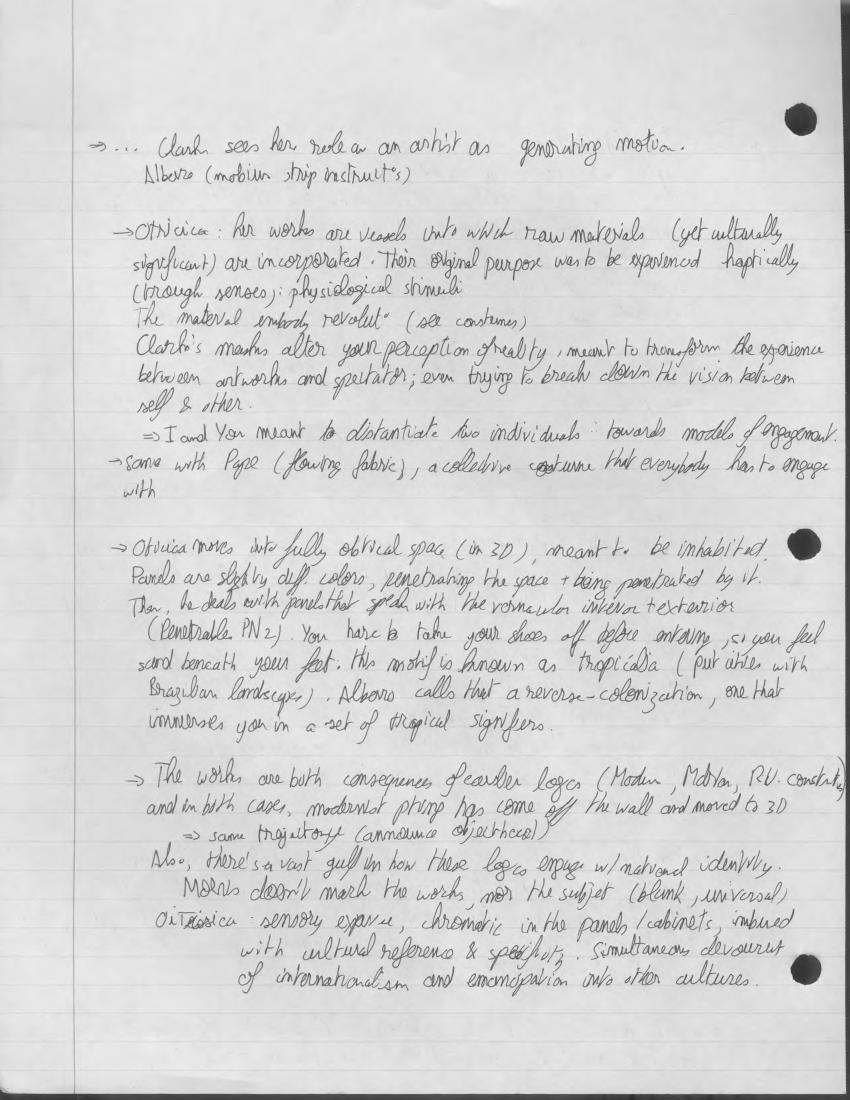 ⇒ ... Clark sees her role as an artist as generating motion.
Alberro (mobius strip instruct°s)
→ Oiticica : her works are vessels into which raw materials (yet culturally
significant) are incorporated. Their original purpose was to be experienced haptically
(through senses) : physiological stimuli
The material embody revolut° (see costumes)
Clark's masks alter your perception of reality, meant to transform the experience
between artworks and spectator; even trying to break down the vision between
self & other.
⇒ I and You meant to distantiate two individuals : towards models of engagement.
→ same with Pape (flowing fabric), a collective costume that everybody has to engage
with
→ Oiticica moves into fully optical space (in 3D), meant to be inhabited.
Panels are slightly diff. colors, penetrating the space + being penetrated by it.
Then, he deals with panels that speak with the vernacular interior + exterior
(Penetrable PN2). You have to take your shoes off before entering, so you feel
sand beneath your feet. this motif is known as tropicalia ( with
Brazilian landscapes). Alberro calls that a reverse-colonization, one that
immerses you in a set of tropical signifiers.
→ The works are both consequences of earlier logics (Modern, , RU. )
and in both cases, modernist pting has come off the wall and moved to 3D
⇒ same trajectory (announce objecthood)
Also, there's a vast gulf in how these logics engage w/ national identity.
Morris doesn't mark the works, nor the subject (blank, universal)
Oiticica : sensory , chromatic in the panels / cabinets, imbued
with cultural reference & specificity. Simultaneous
of internationalism and emancipation into other cultures.